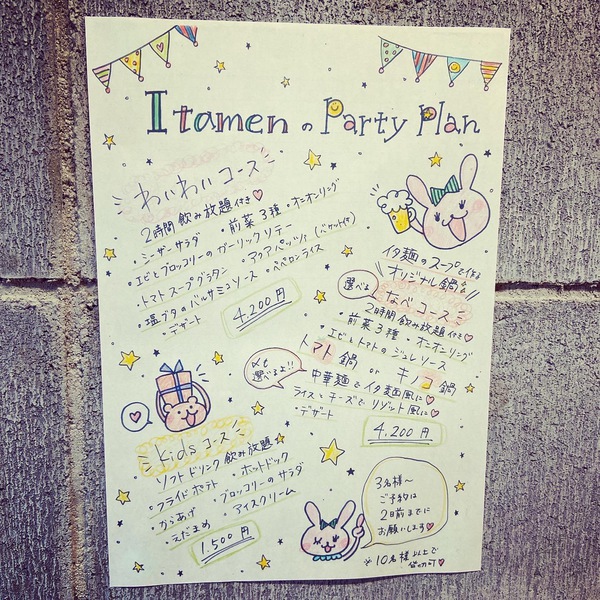 Itamen の Party Plan
わいわいコース
2時間飲み放題付き♡
・前菜3種・オニオンリング
・シーザーサラダ
・エビとブロッコリーのガーリックソテー
・アクアパッツァ(バケット付)
・トマトスープグラタン
・ペペロンライス
・塩ブタのバルサミコソース
・デザート
4,200円
イタ麺のスープで作る
オリジナル鍋
選べる
なべコース
2時間飲み放題付き♡
・前菜3種・オニオンリング
・エビとトマトのジュレソース
〆も選べるよ!!
トマト鍋 or キノコ鍋
中華麺でイタ麺風に♡
ライスとチーズでリゾット風に♡
・デザート
4,200円
Kidsコース
ソフトドリンク飲み放題
・フライドポテト
・ホットドック
・からあげ
・ブロッコリーのサラダ
・えだまめ
・アイスクリーム
1,500円
3名様〜
ご予約は
2日前までに
お願いします♡
※10名様以上で
貸切可♡